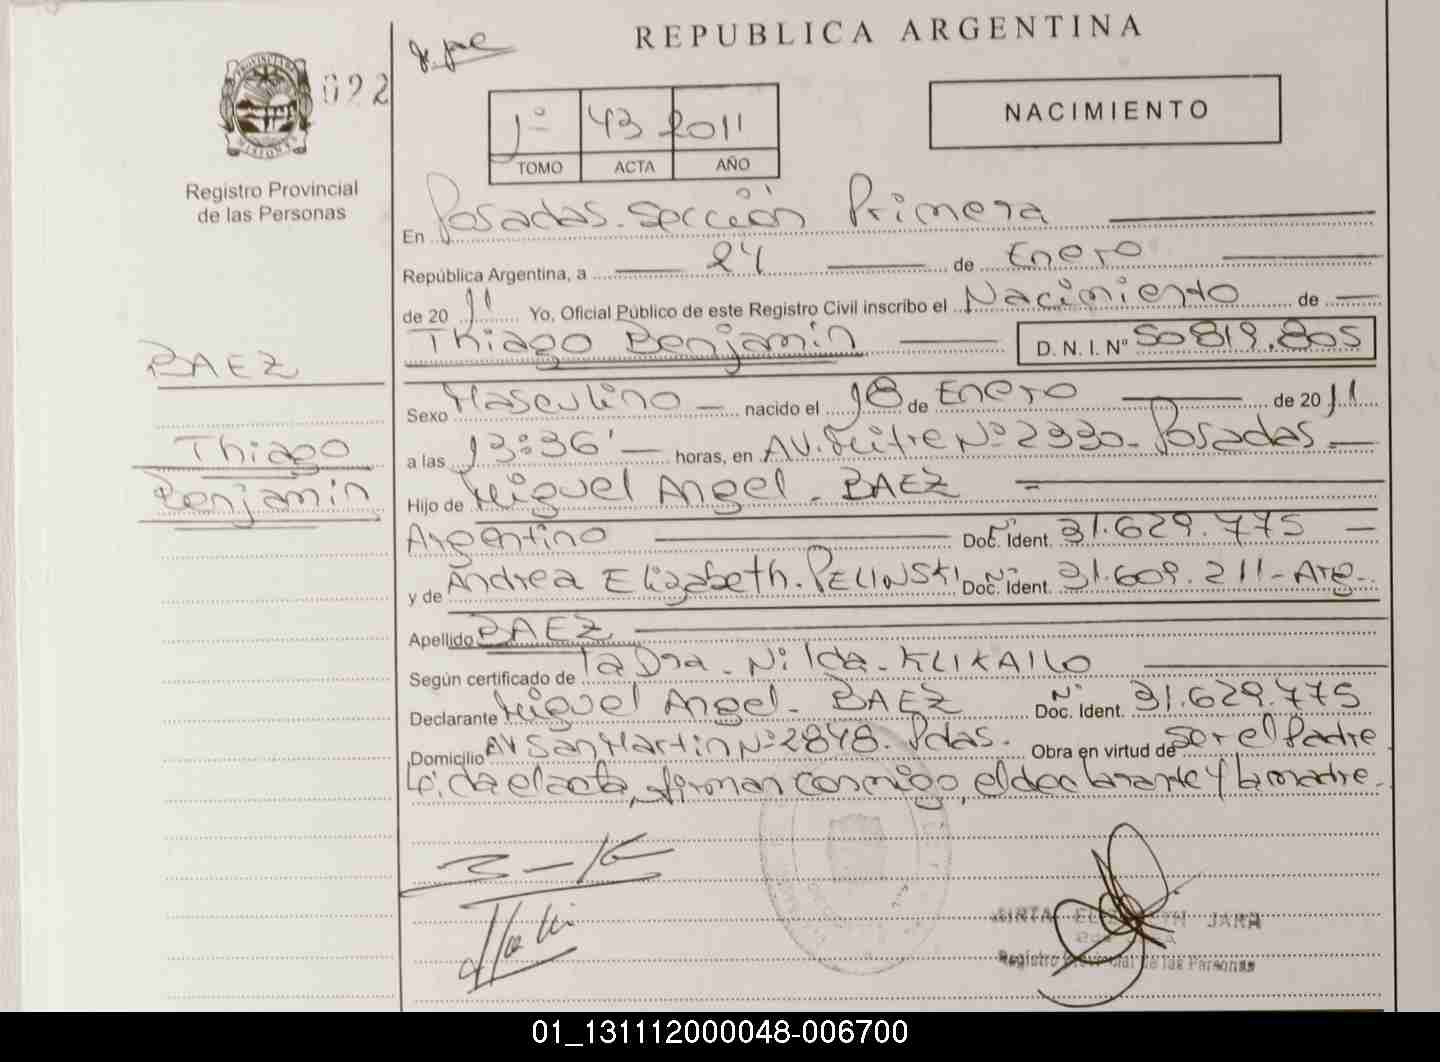 REPUBLICA ARGENTINA
PROVINCIA DE
MISIONES
022
Registro Provincial
de las Personas
1º 43 2011
TOMO ACTA AÑO
NACIMIENTO
En Posadas. Sección Primera
República Argentina, a 24 de Enero
de 2011 Yo, Oficial Público de este Registro Civil inscribo el Nacimiento de
Thiago Benjamín D. N. I. Nº 50819.805
BAEZ
Thiago
Benjamín
Sexo Masculino nacido el 18 de Enero de 2011
a las 13:36' horas, en AV. Mitre Nº 2330- Posadas.
Hijo de Miguel Angel. BAEZ
Argentino Doc. Ident. Nº 31.629.775
y de Andrea Elizabeth. PELINSKI Doc. Ident. Nº 31.609.211- Arg.
Apellido BAEZ
Según certificado de la Dra. Nilda. KLIKAILO
Declarante Miguel Angel. BAEZ Doc. Ident. Nº 31.629.775
Domicilio AV San Martin Nº 2848. Pdas. Obra en virtud de ser el Padre
Leida el acta, firman conmigo, el declarante y la madre.
MIRTA ELIZABETH JARA
Registro Provincial de las Personas
01_131112000048-006700